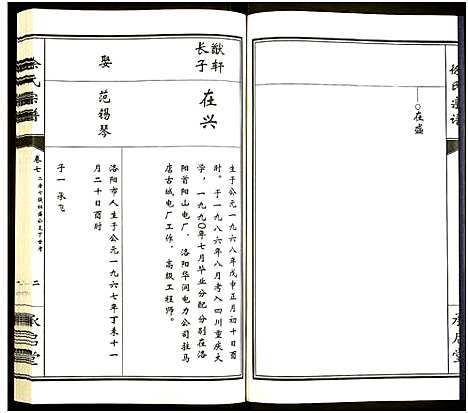 徐氏宗谱
承启堂
○在盛
猷轩
长子
在兴
生于公元一九六八年戊申正月初十日酉
时。于一九八六年八月考入四川重庆大
学，一九九〇年七月毕业分配分别在洛
阳首阳山电厂、洛阳华润电力公司驻马
店古城电厂工作，高级工程师。
娶
范锡琴
洛阳市人生于公元一九六七年丁未十一
月二十日酉时
子一 承飞
徐氏宗谱
卷七
二
承启堂